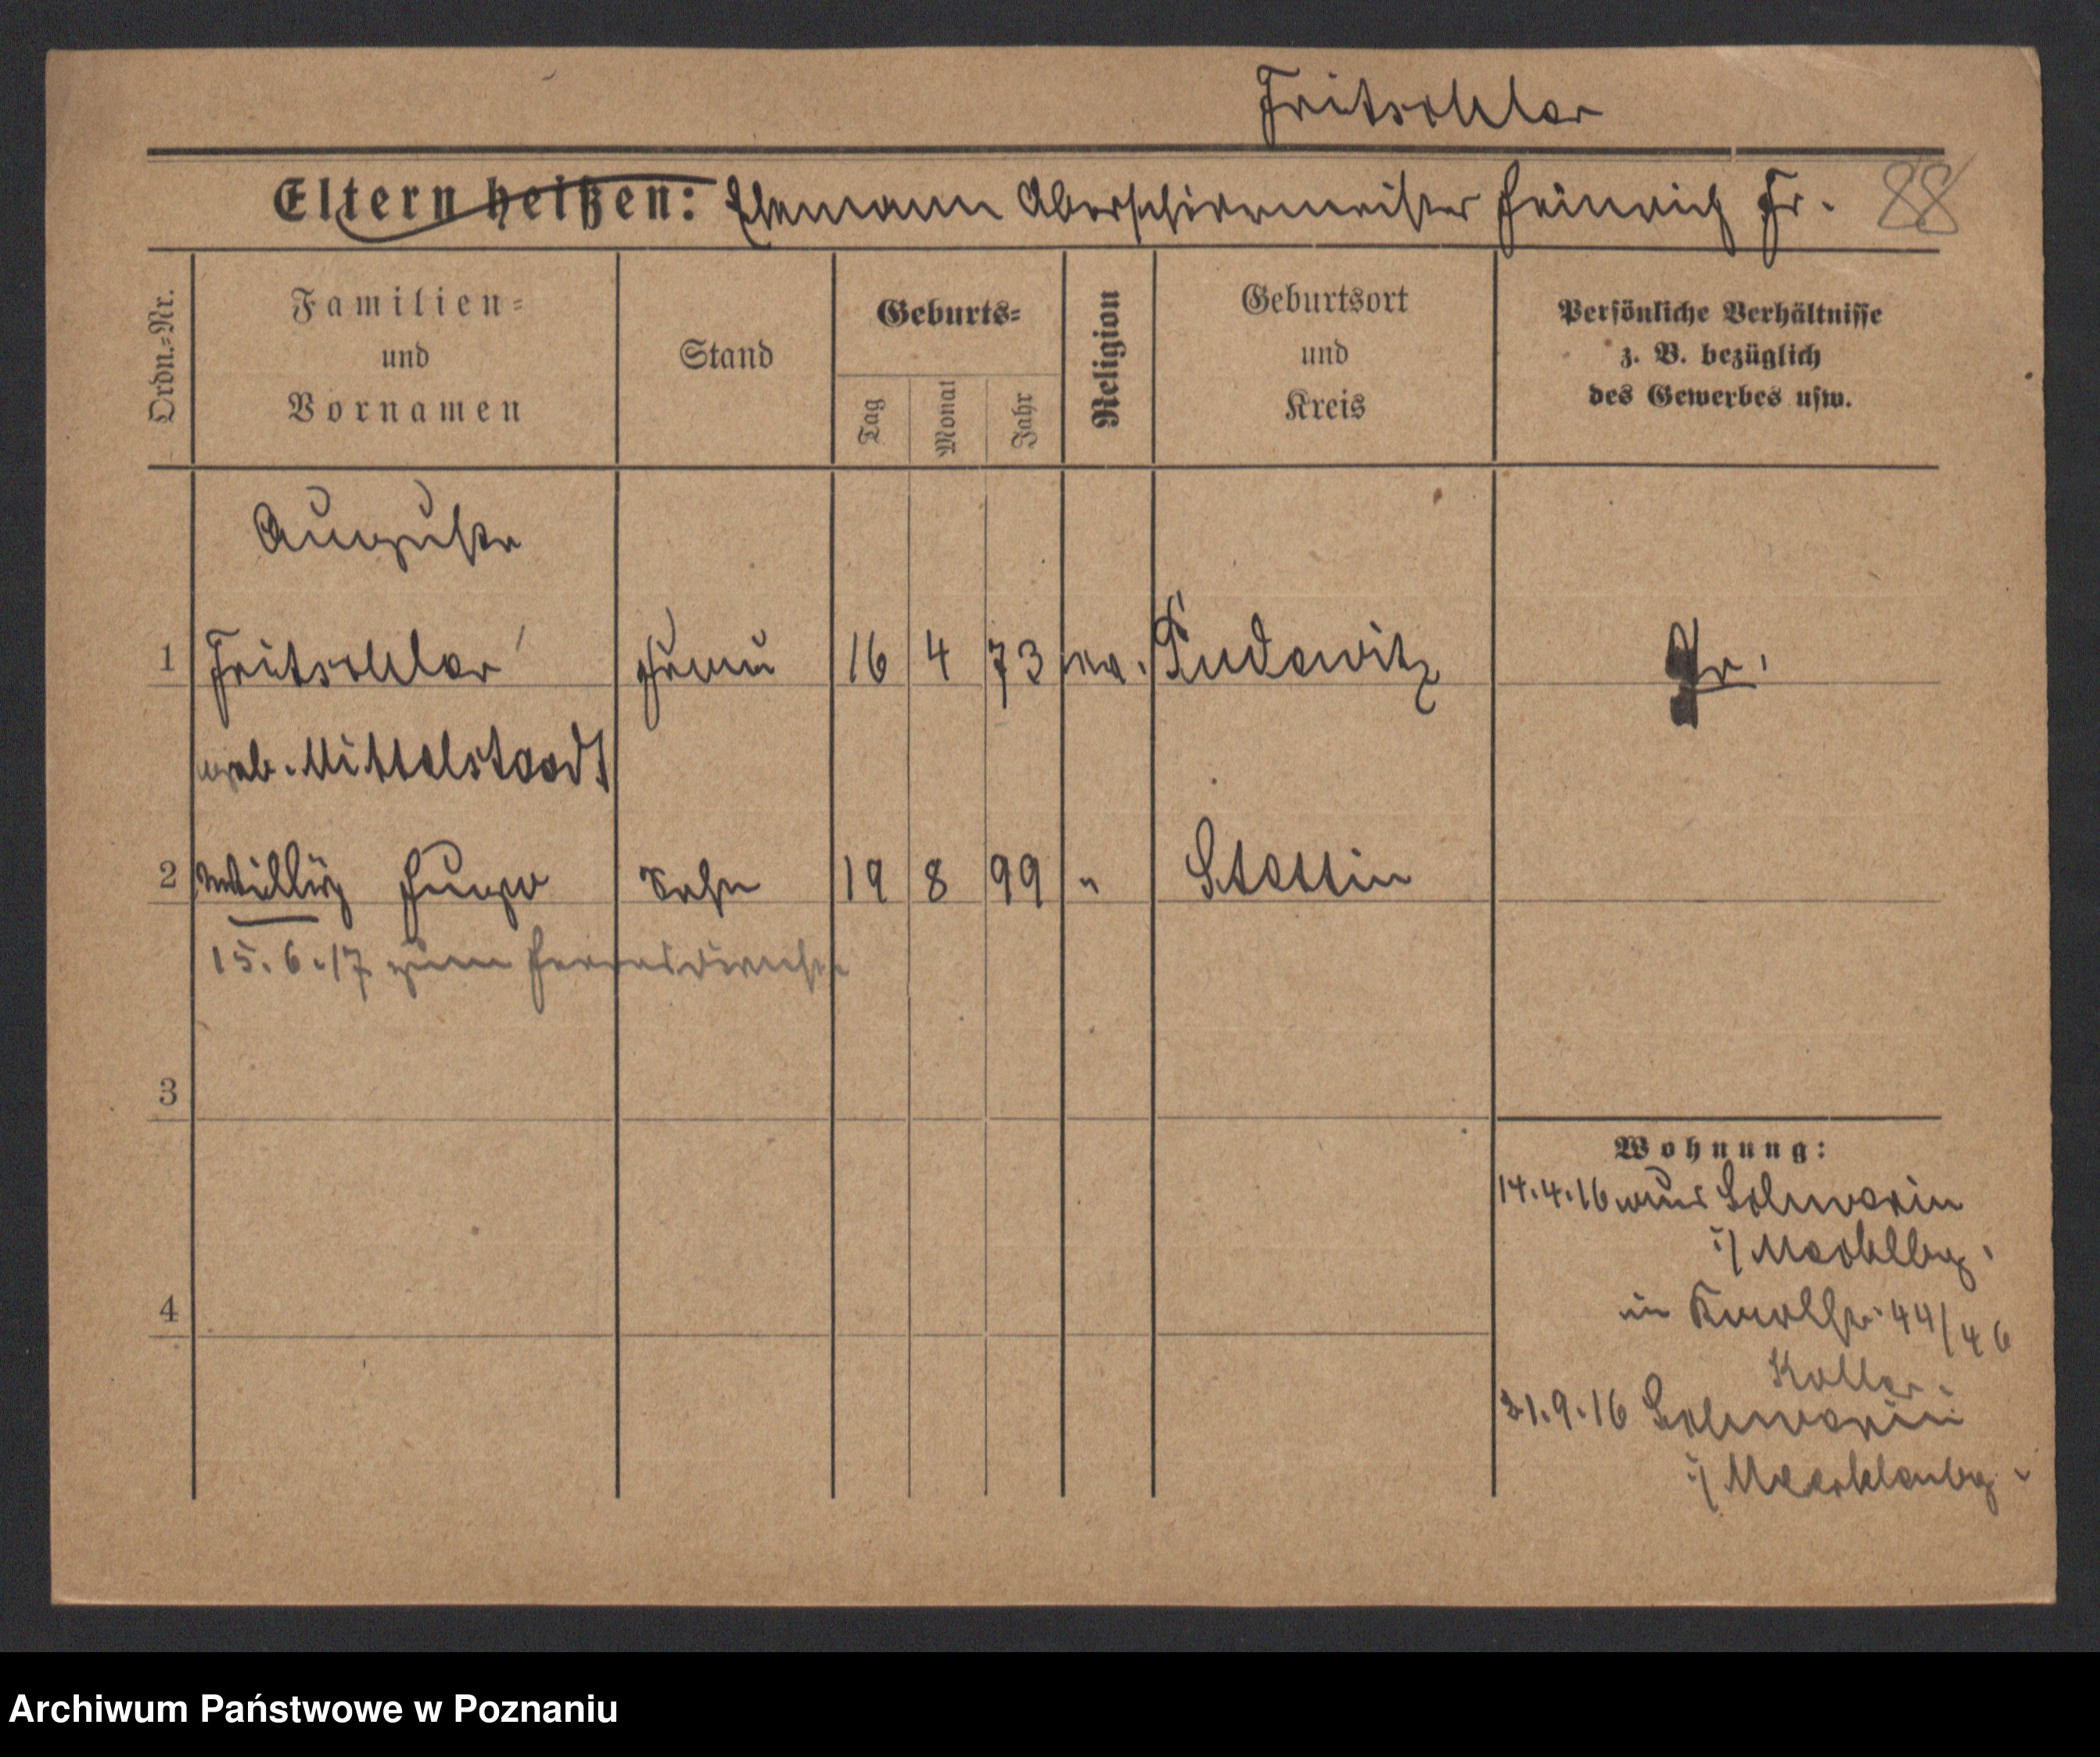 Fritschler
Eltern heißen: Ehemann Oberschirrmeister Heinrich Fr. 88
Ordn.=Nr.
Familien=
und
Vornamen
Stand
Geburts=
Tag
Monat
Jahr
Religion
Geburtsort
und
Kreis
Persönliche Verhältnisse
z. B. bezüglich
des Gewerbes usw.
Auguste
1 Fritschler Frau 16 4 73 ev. Pudewitz Pr.
geb. Mittelstaedt
2 Willy Hugo Sohn 19 8 99 " Stettin
15.6.17 zum Heeresdienst
3
Wohnung:
14.4.16 aus Schwerin
i/ Mecklbg.
4
in 44/46
Keller
21.9.16 Schwerin
i/ Mecklenbg.
Archiwum Państwowe w Poznaniu